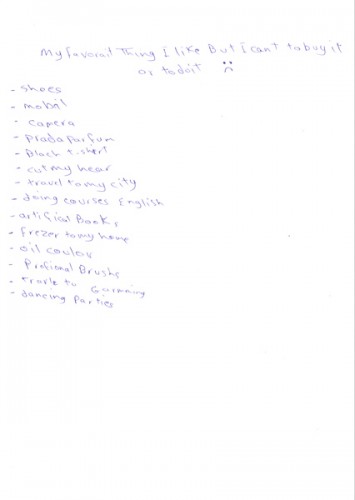 My favorail Thing I like But I can't to buy it
or to do it
- shoes
- mobil
- camera
- prada parfum
- Black t-shirt
- cut my hear
- travel to my city
- doing courses English
- artifical Books
- frezer to my home
- oil coulor
- Profional Brushe
- travle to Germming
- dancing Parties